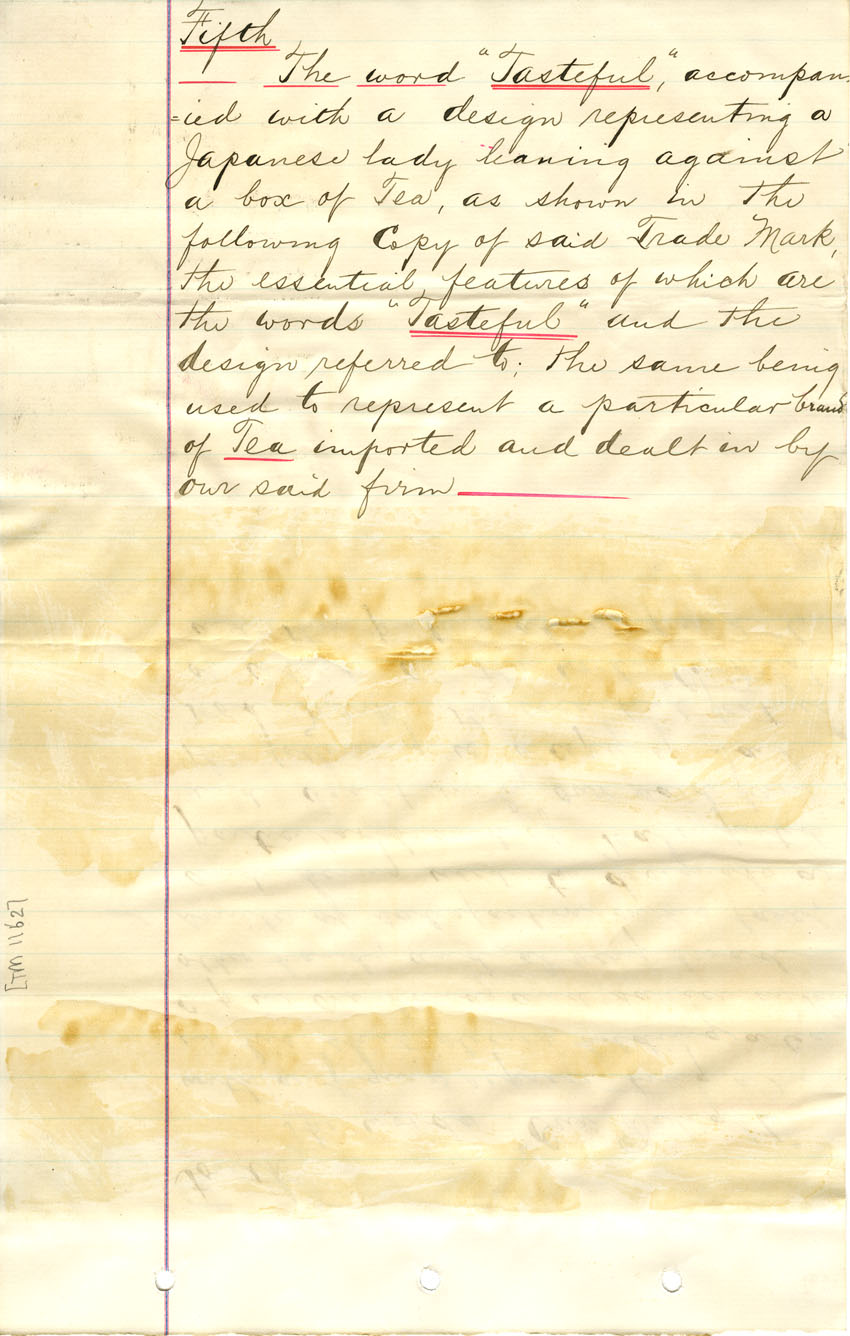 Fifth
The word "Tasteful", accompan-
=ied with a design representing a
Japanese lady leaning against
a box of Tea, as shown in the
following Copy of said Trade Mark,
the essential features of which are
the words "Tasteful" and the
design referred to; the same being
used to represent a particular brand
of Tea imported and dealt in by
our said firm
[TM 11627